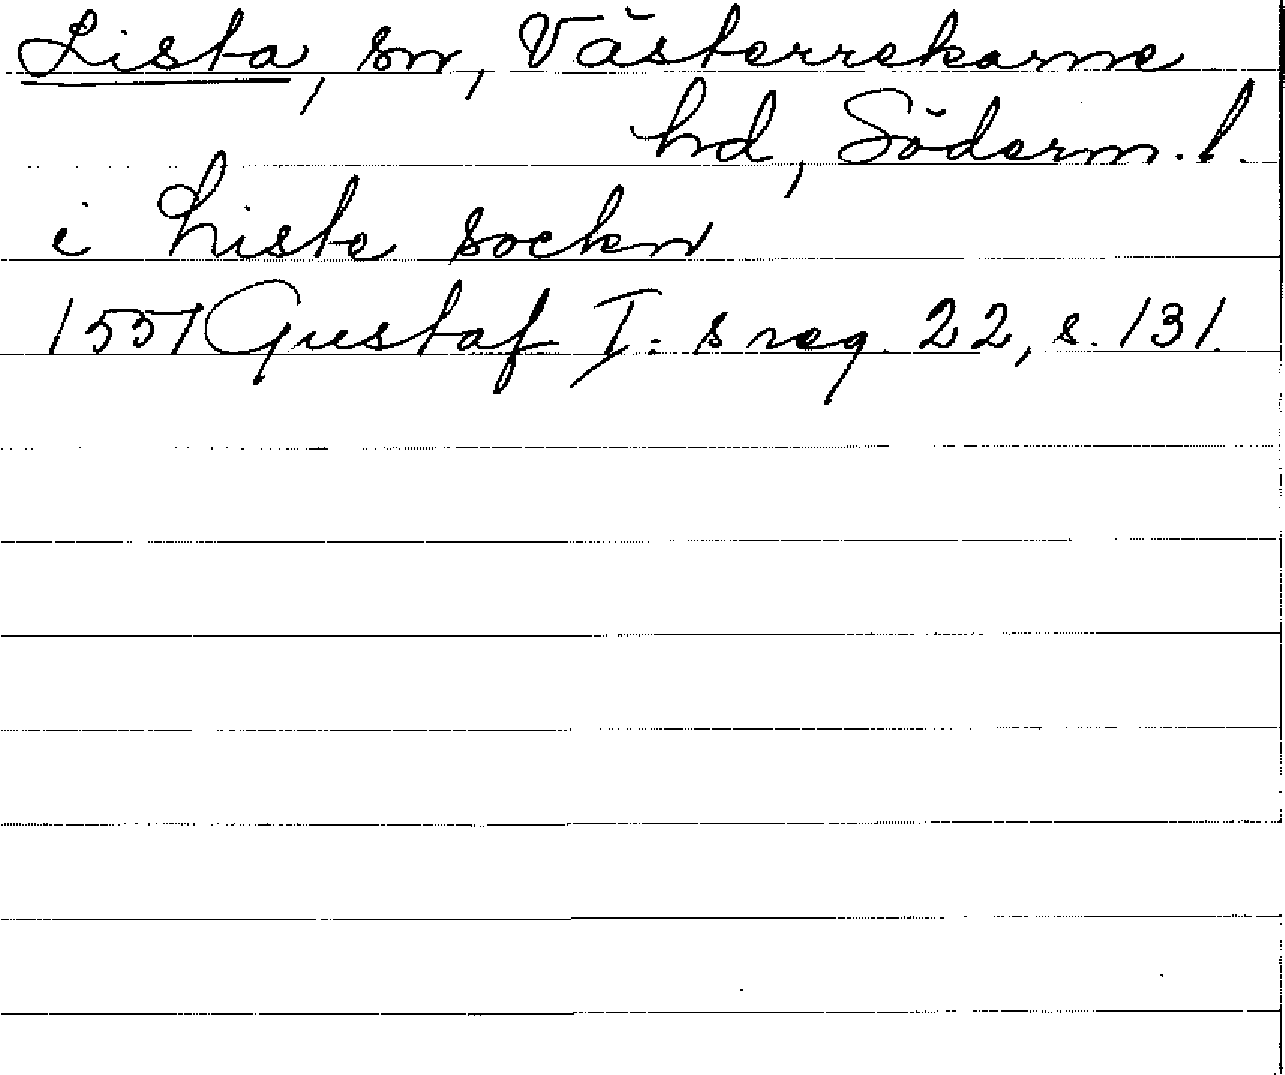 Lista, sn, Västerrekarne
hd, Söderm. l.
i Liste sockn
1551 Gustaf I:s reg. 22, s. 131.